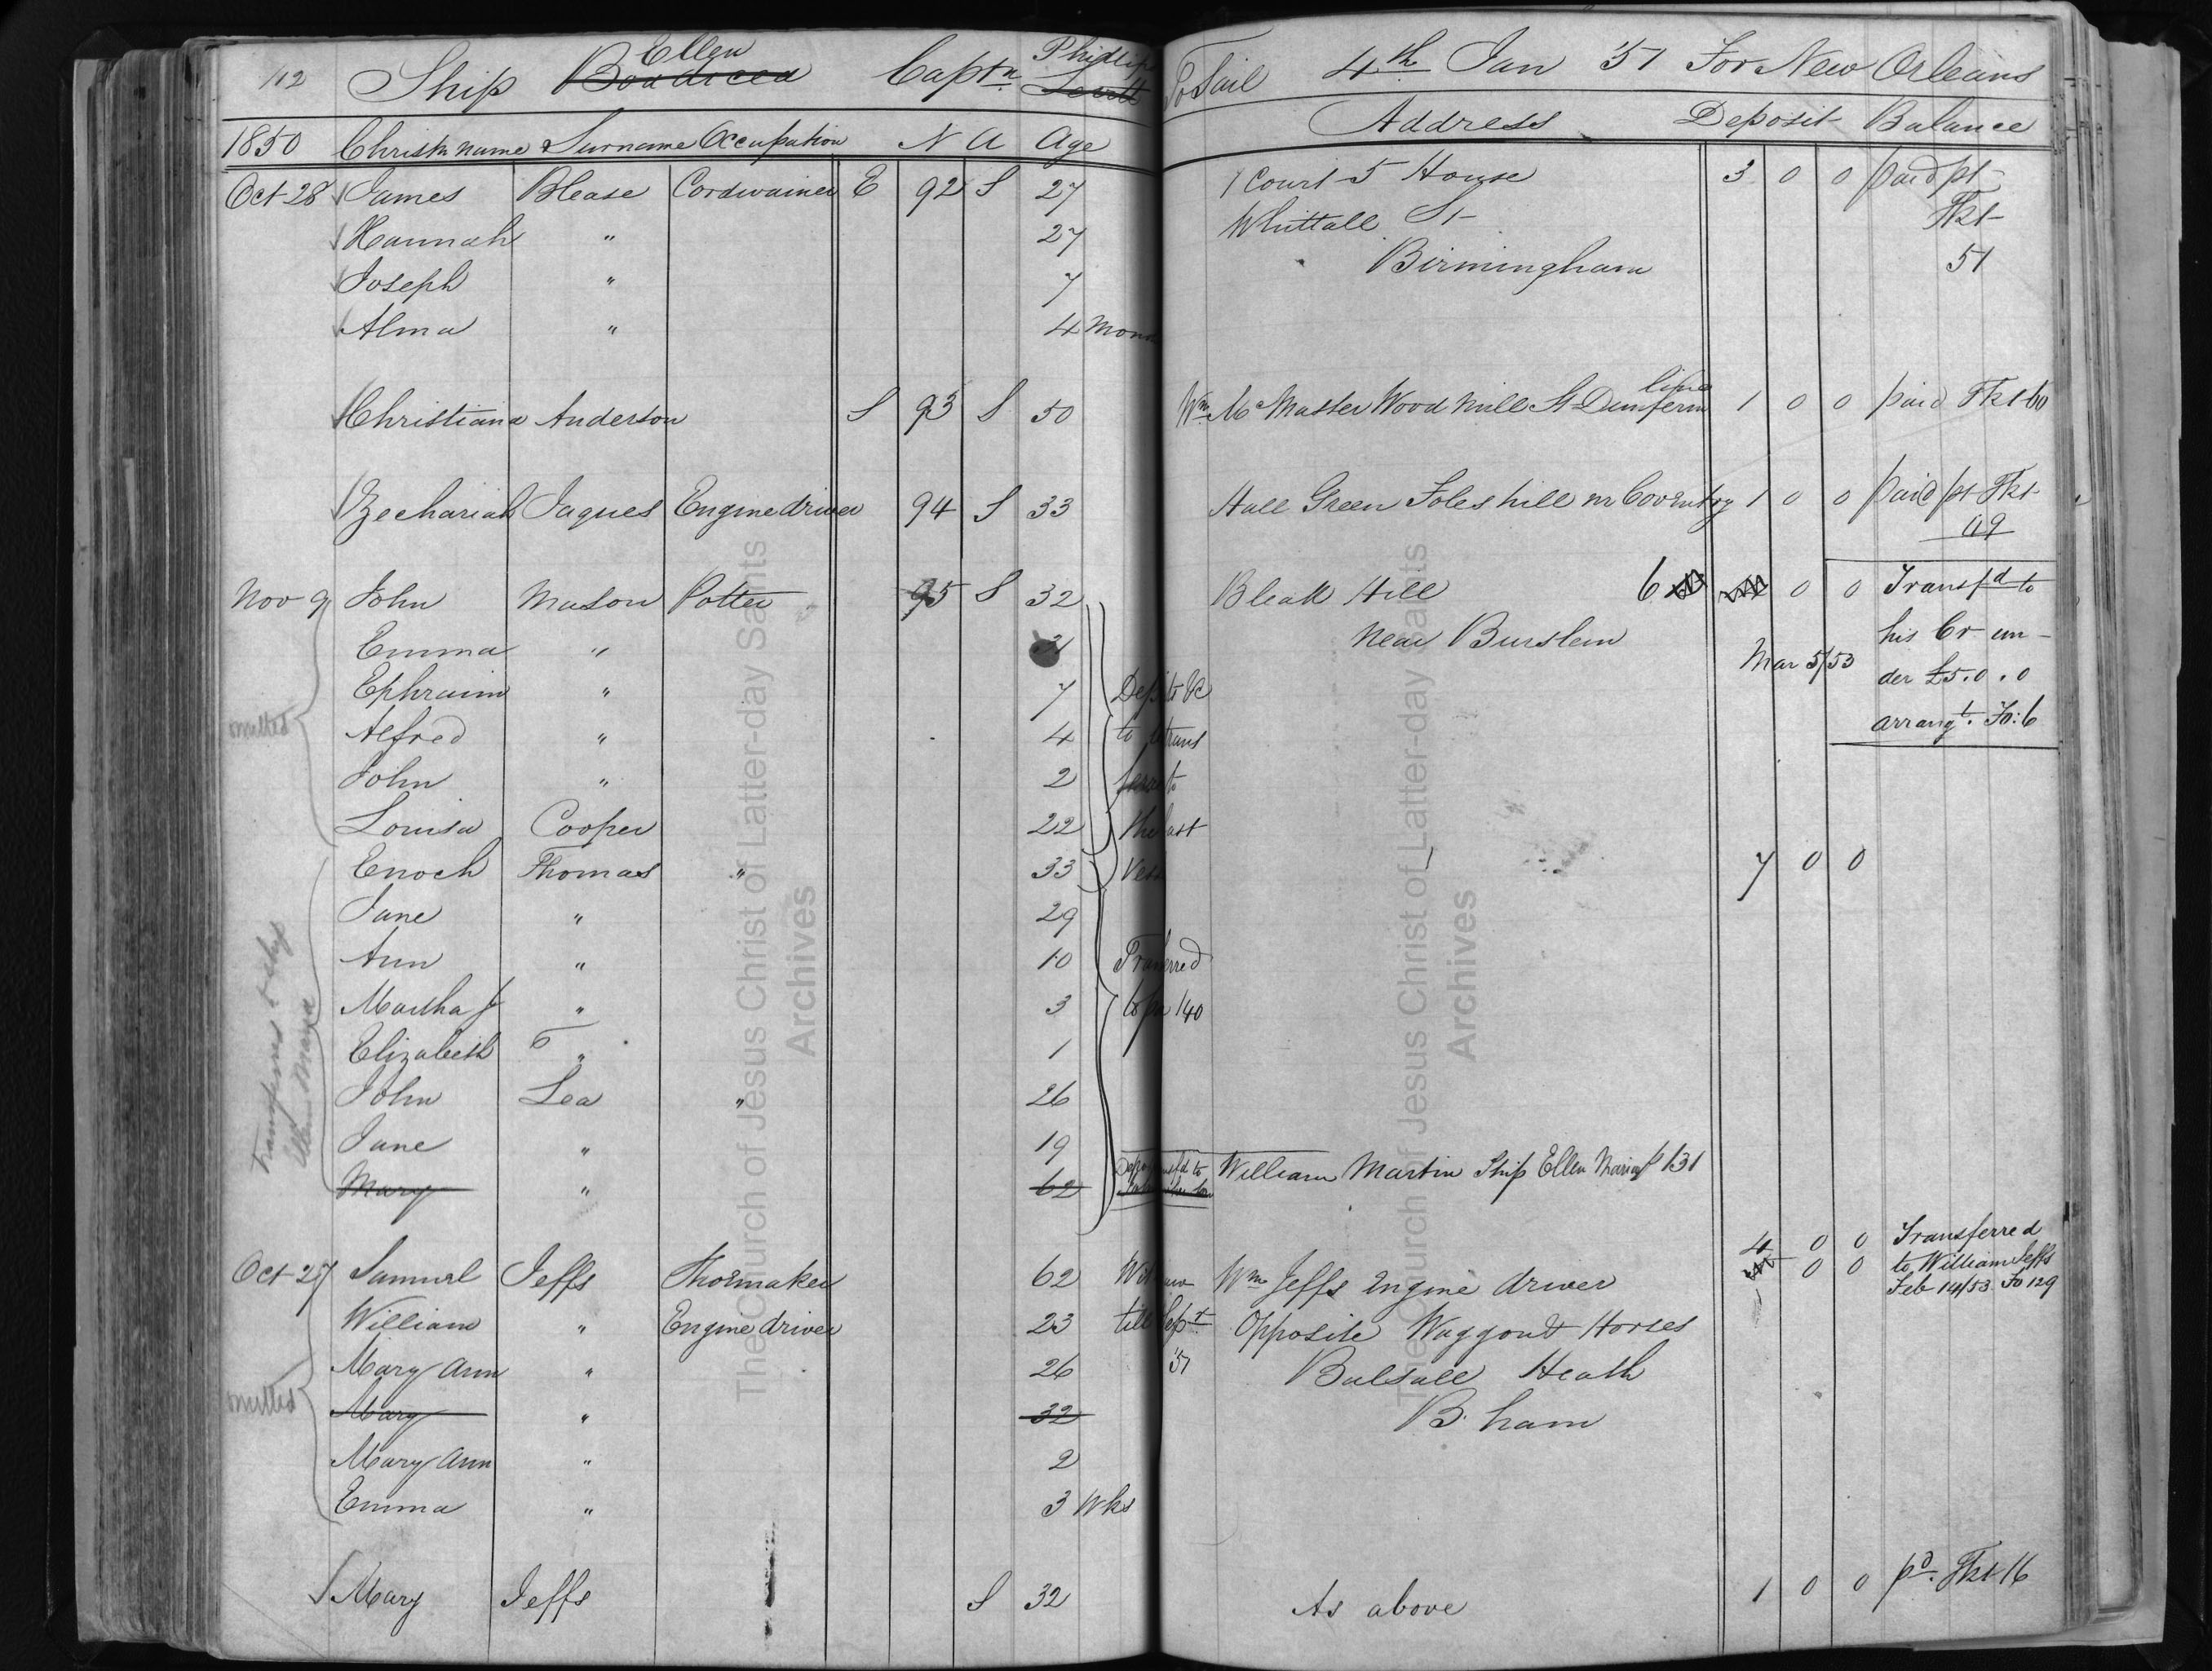 112 Ship Ellen Boadicea Captn Phillips Lovitt To Sail 4th Jan '51 For New Orleans
1850 Christn name & Surname Occupation N A Age Address Deposit Balance
Oct 28 James Blease Cordwainer E 92 S 27 1 Court 5 House 3 0 0 paid pt
Hannah " 27 Whittall St Tkt
Joseph " 7 Birmingham 51
Alma " 4 Mon
Christiana Anderson S 93 S 50 Wm McMaster Wood Mill St Dunfermline 1 0 0 paid Tkt 60
Zechariah Jaques Engine driver 94 S 33 Hall Green Foleshill nr Coventry 1 0 0 paid pt Tkt
49
Nov 9 John Mason Potter 95 S 32 Bleak Hill 6 0 0 Transfd to
Emma " 31 near Burslem his Cr un-
Mar 5/53 der £5.0.0
Ephraim " 7 Dep to be
omitted Alfred " 4 to trans arrangt. Fo: 6
John " 2 to
Louisa Cooper 22 the last
Enoch Thomas " 33 Vess 7 0 0
Jane " 29
Ann " 10 Tranferred
Martha J " 3 to pa 140
Elizabeth T " 1
John Lea " 26
Jane " 19
Mary " 62 William Martin Ship Ellen Maria p 131
transferred to ship
Ellen Maria
4 0 0 Transferred
Oct 27 Samuel Jeffs Shoemaker 62 Wm Jeffs Engine driver 0 0 to William Jeffs
Feb 14/53 Fo 129
William " Engine driver 23 till Sept Opposite Waggon & Horses
Mary Ann " 26 '51 Balsall Heath
omitted Mary " 32 B.ham
Mary Ann " 2
Emma " 3 Wks
Mary Jeffs S 32 As above 1 0 0 pd. Tkt 16
The Church of Jesus Christ of Latter-day Saints
Archives
The Church of Jesus Christ of Latter-day Saints
Archives